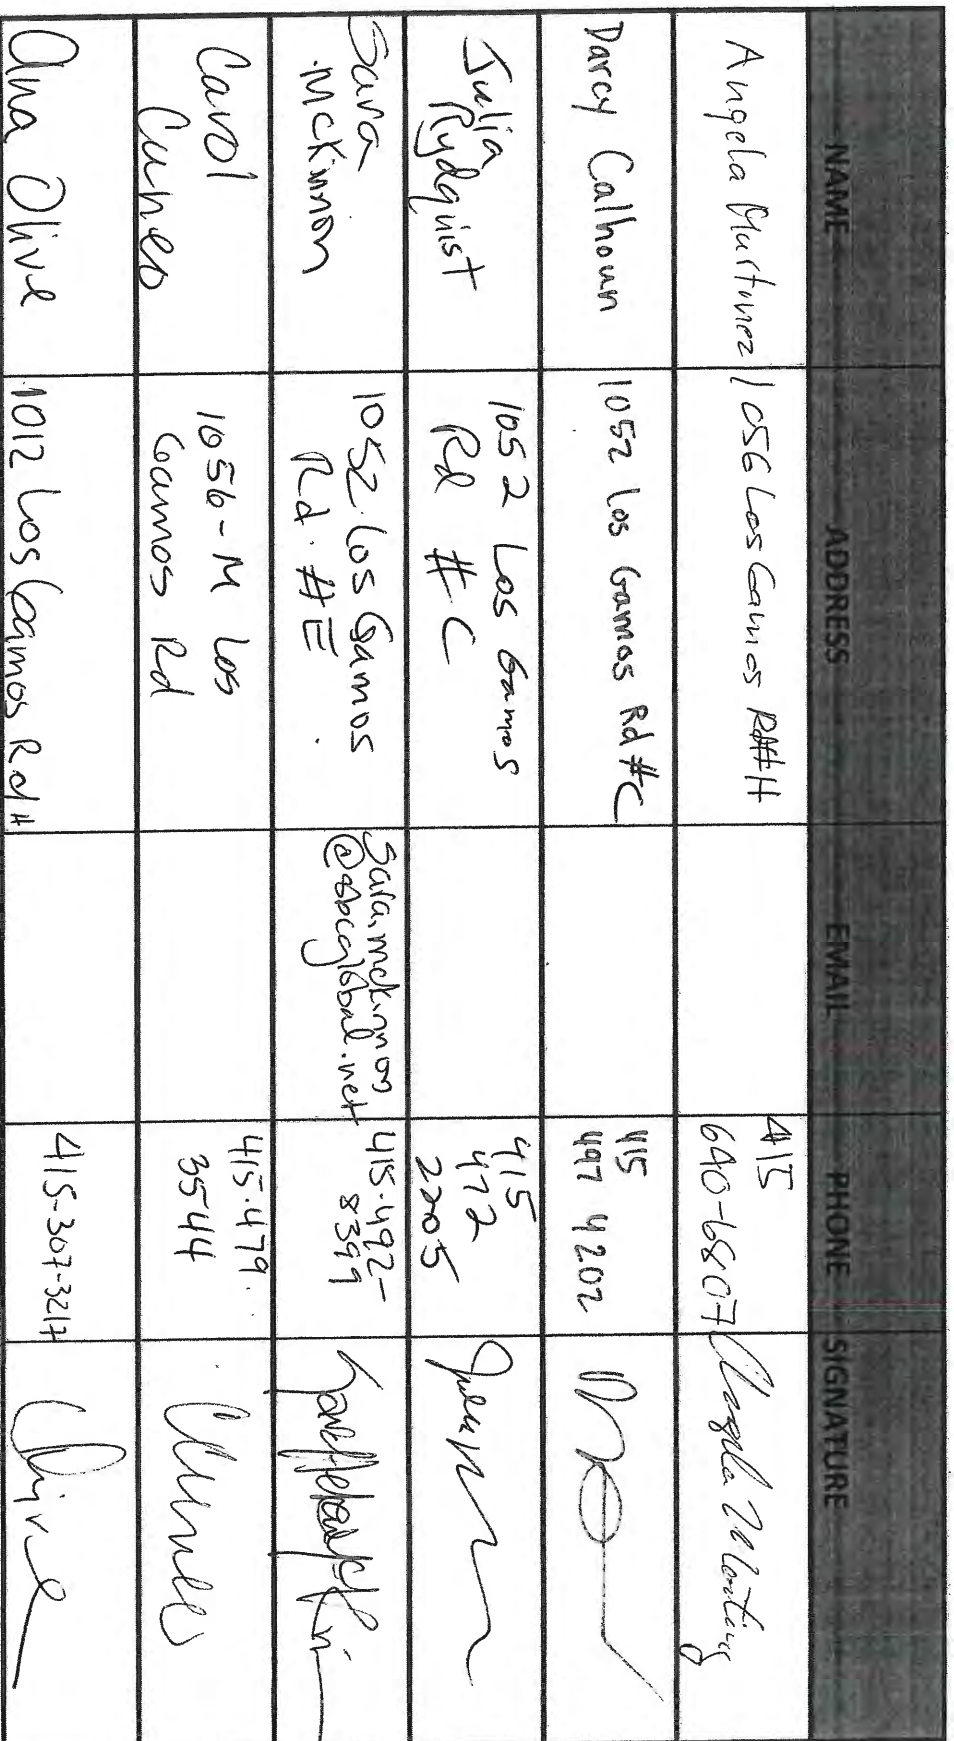 NAME ADDRESS EMAIL PHONE SIGNATURE
Angela Martinez 1056 Los Gamos Rd#H 415
640-6807 Angela Martinez
Darcy Calhoun 1052 Los Gamos Rd #C 415
497 4202
Julia
Rydquist 1052 Los Gamos
Rd #C 415
472
2205
Sara
McKinnon 1052 Los Gamos
Rd. #E sara.mckinnon
@sbcglobal.net 415-492-
8399
Carol
Cuneo 1056-M Los
Gamos Rd 415-479
3544
Ana Olive 1012 Los Gamos Rd # 415-307-3217 Olive